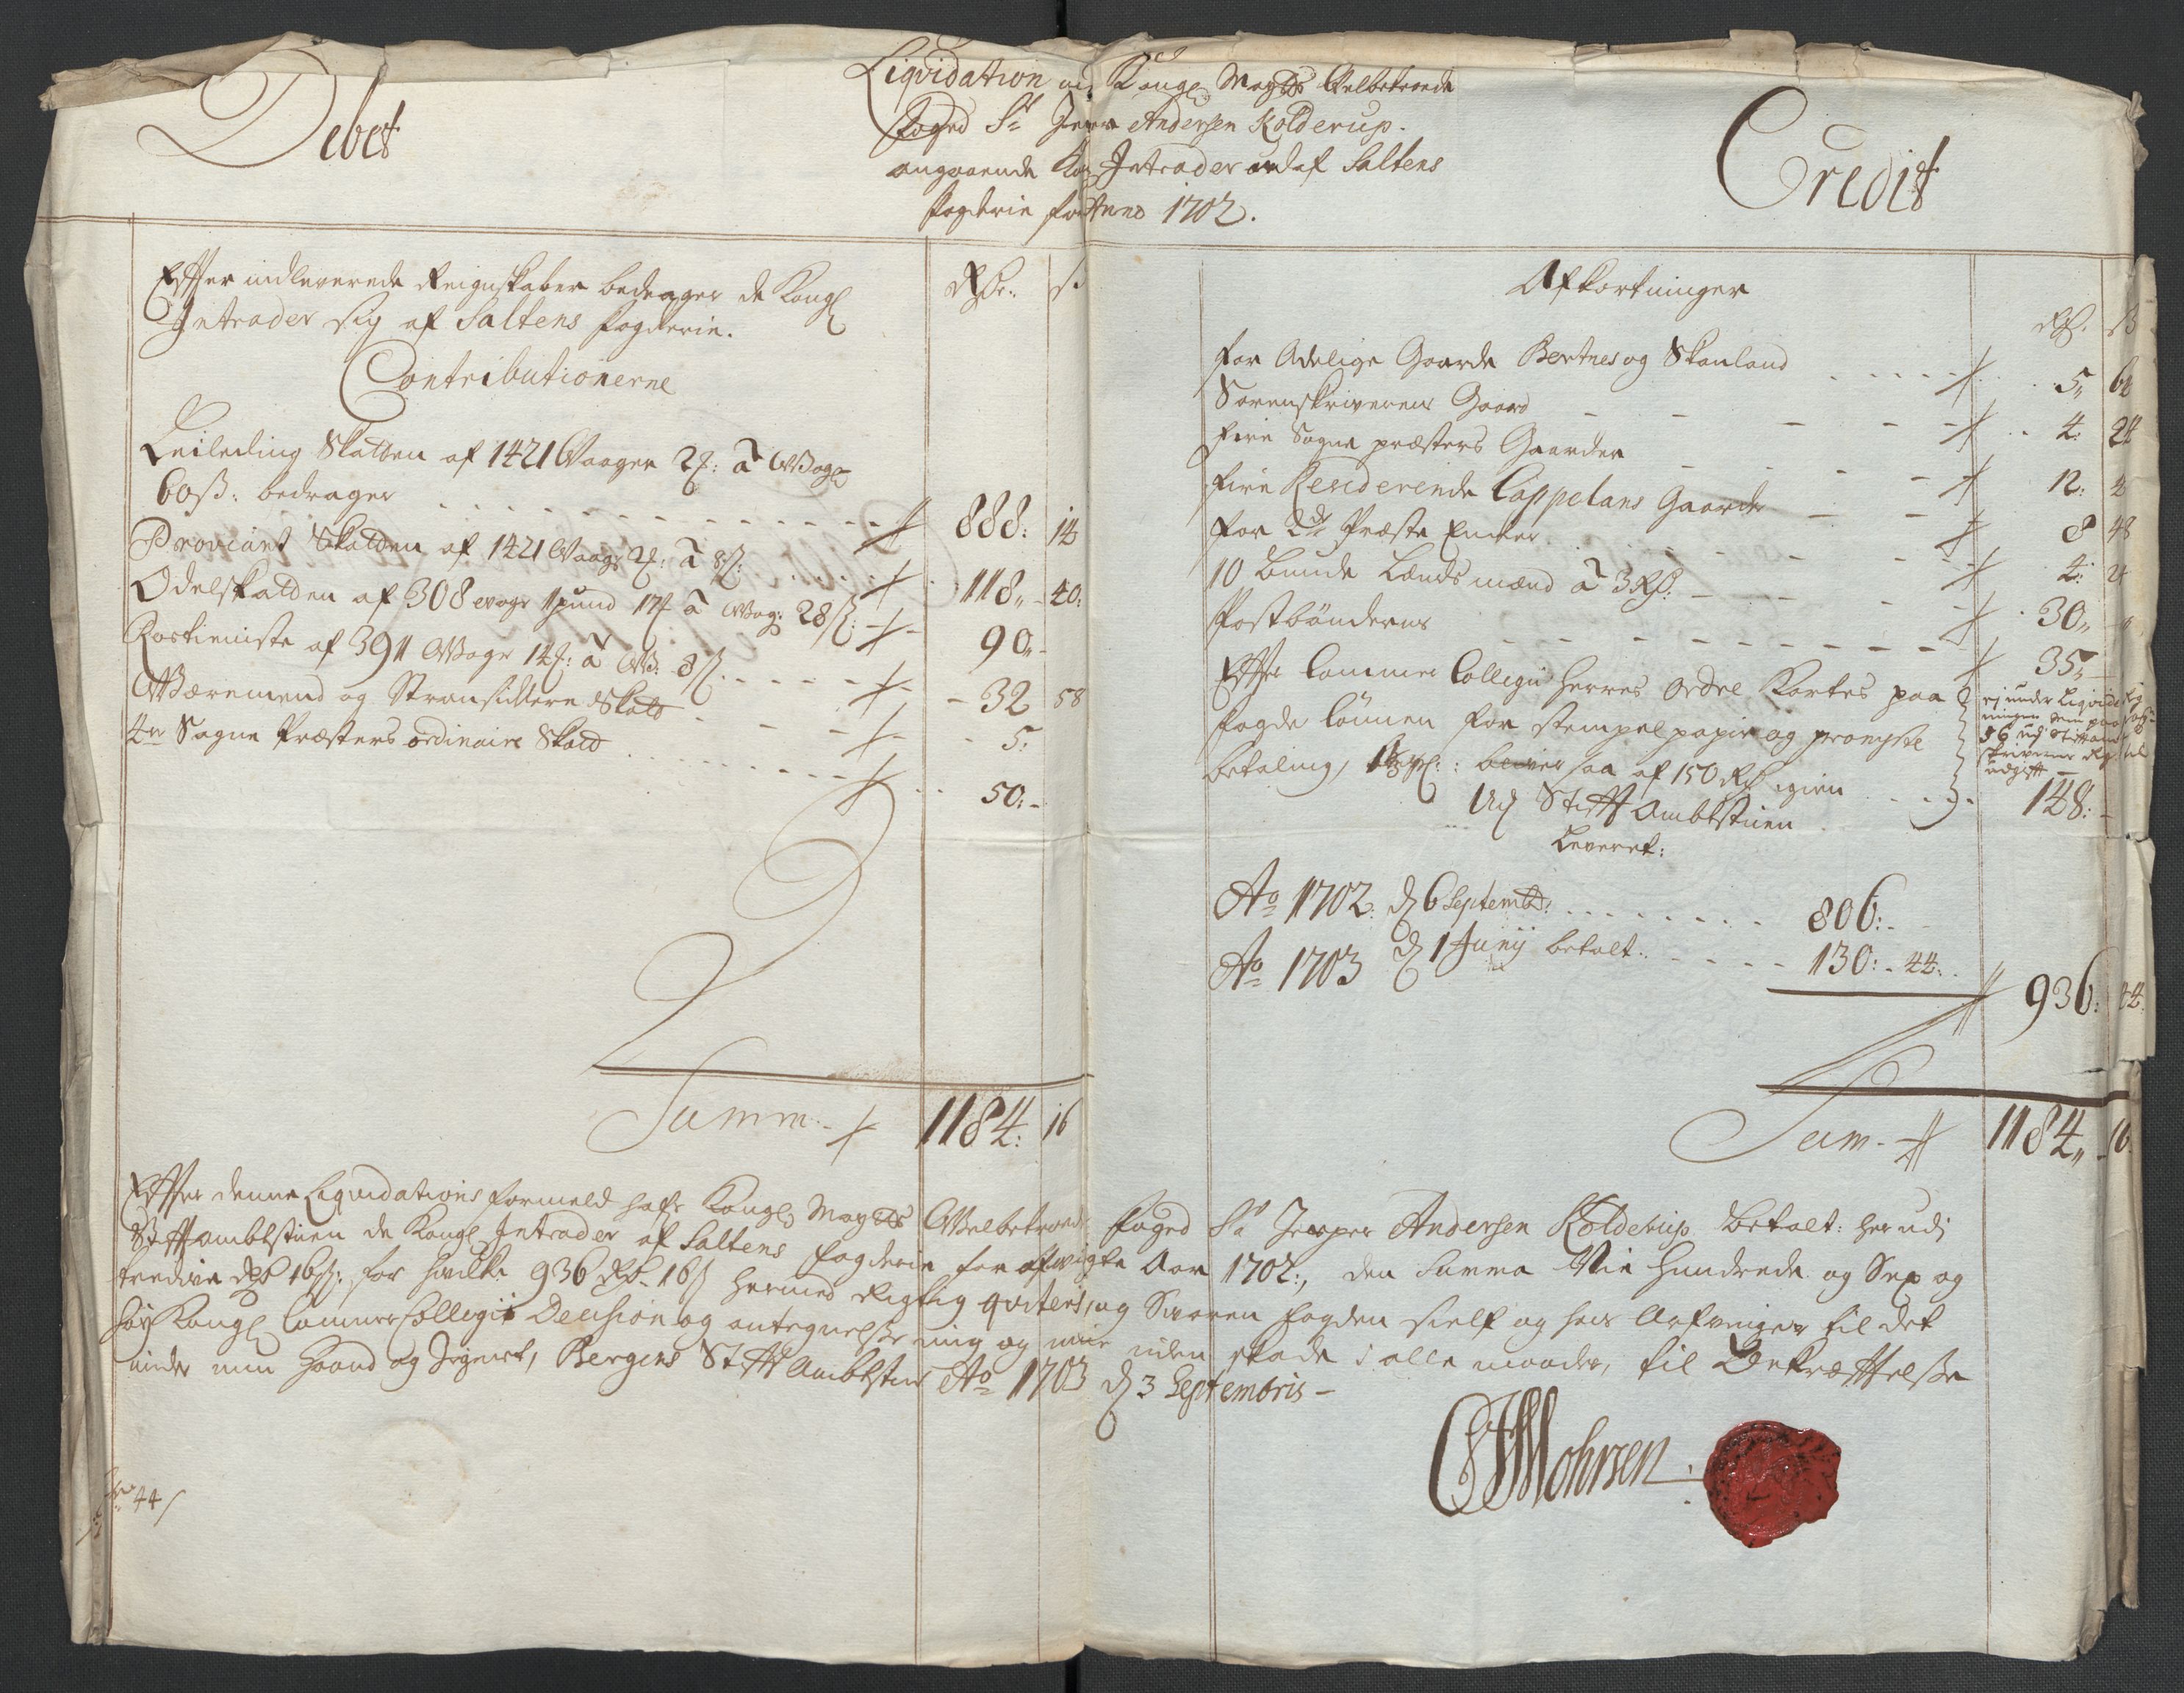 Debet
Liqvidation med Kongl: Mayts Velbetroede
Foged Sr Jesper Andersen Kolderup
angaaende Kongl Intrader udaf Saltens
fogderie for Anno 1702.
Credit
Effter indleverede Reigenskaber bedrager de Kongl
Intrader sig af Saltens fogderie.
Contributionerne
Rdr: ß
Leilending Skatten af 1421 Waager 2 f: à Wog
60 ß: bedrager 888: 14
Proviant Skatten af 1421 Waag: 2 f: à 8 ß: 118: 40:
Odelskatten af 308 wogr 1 pund 17 f à Wog: 28 ß: 90: -
Rostieniste af 391 Wogr 14 f: à W: 8 ß 32 58
Wæremend og Stransidderne Skatt 5:
4re Sogne Præsters ordinaire Skatt 50: -
Summ 1184: 16
Afkortninger
Rdr. ß
for Adelige Gaarde Bertnes og Skanland 5: 64
Sorenskriverens Gaard 4: 24
fire Sogne præsters Gaarder 12: 4
fire Residerende Cappelans Gaarde 8 48
for 2de Præste Encker 4: 24
10 Bunde Lænds mænd à 3 Rdr: 30: -
Postbønderne 35: -
Effter Cammer Collegii Herres Ordre Kortes paa
fogde lønnen for stempel papir og prompte
betaling, bliver saa af 150 Rdr igien 148: -
Udj Stifft Ambtstuen
Leveret:
Ao 1702: d 6 Septemb: 806: -
Ao 1703 d 1 Junij betalt: 130: - 44:
936: 44
Sum 1184: 16
Effter denne Liqvidations formeld hafr Kongl: Mayts Welbetroede foged Sr Jesper Andersen Kolderup betalt: her udj
Stifftambtstuen de Kongl Intrader af Saltens fogderie for afvigte Aar 1702:, den Summa Nie Hundrede og Sex og
tredive Rdr 16 ß: for hvilke 936 Rdr 16 ß hermed Rigtig qviteris, og Svaren fogden sielf og hans Arfvinger til det
høy Kongl Cammer Collegii Decision og antegnelser mig og mine uden skade i alle maader, til Bekræfftelse
under min Haand og Signet, Bergens Stifft Ambtstue Ao 1703 d 3 Septembris -
CF Mohrsen